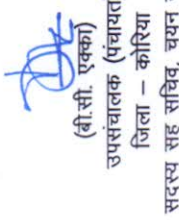 (बी.सी. एक्का)
उपसंचालक (पंचायत
जिला – कोरिया
सदस्य सह सचिव, चयन